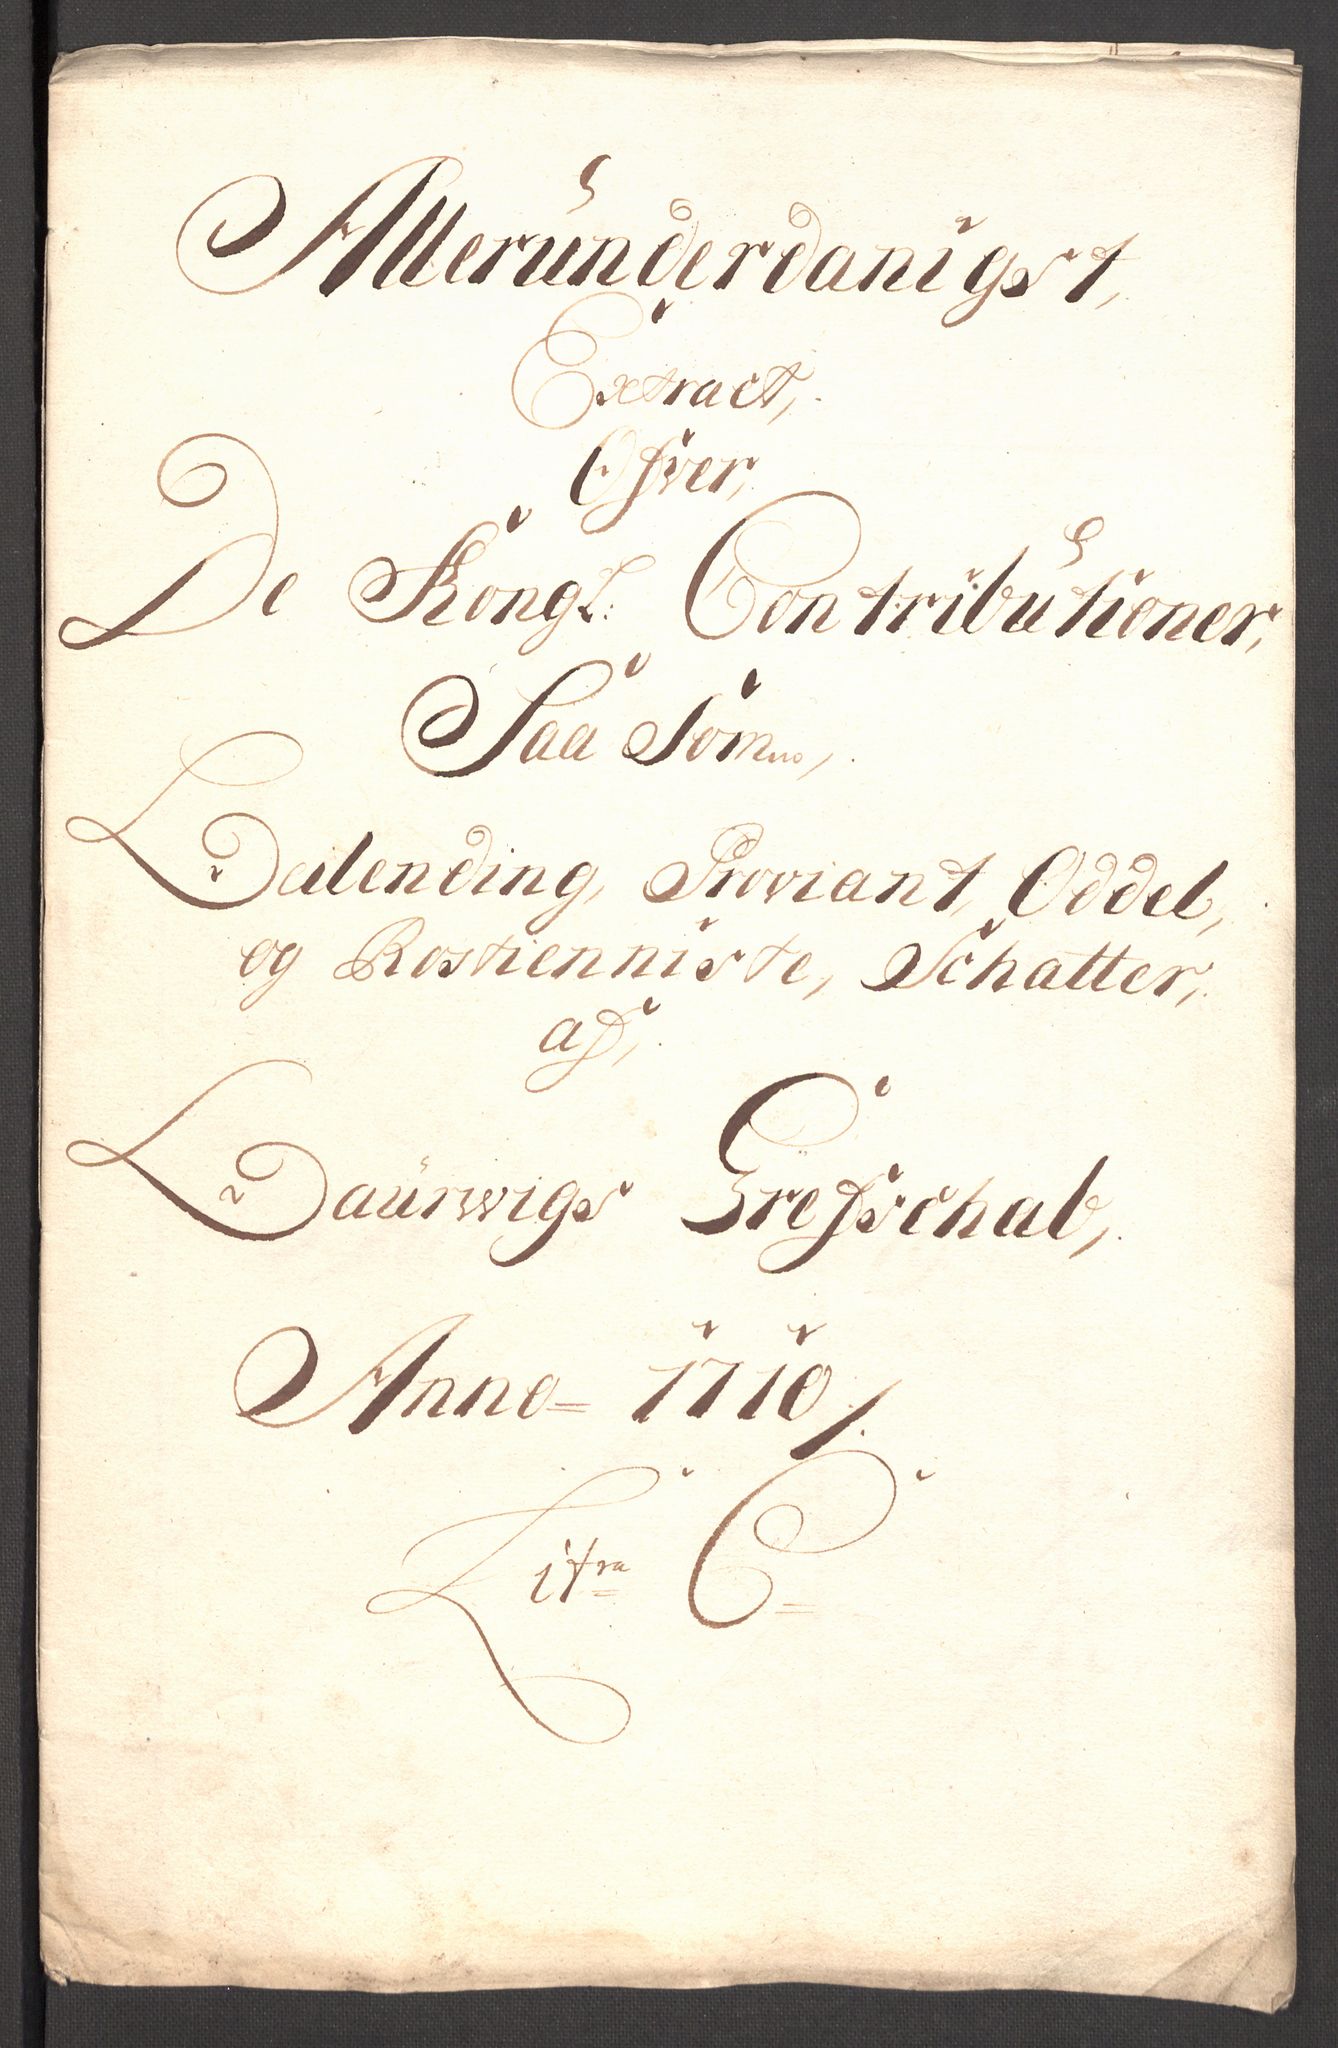 Alleründerdanigst,
Extract,
Ofver,
De Kongl: Contributioner,
Saa Som,
Leilending, Proviant, Oddel,
og Rostienniste, Schatter,
af,
Laürwigs Grefschab,
Anno = 1710/.
Litra C =